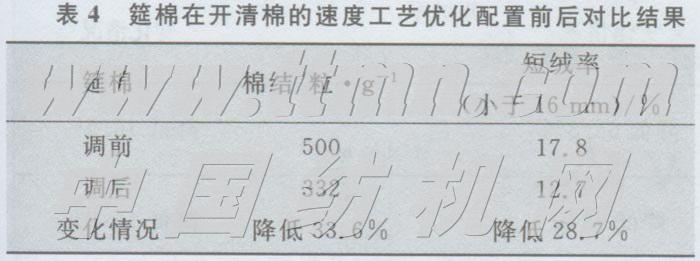 表 4 筵棉在开清棉的速度工艺优化配置前后对比结果
筵棉 棉结/粒·g⁻¹ 短绒率
(小于 16 mm)/%
调前 500 17.8
调后 332 12.7
变化情况 降低 33.6% 降低 28.7%
www.ttmn.com
中国纺机网